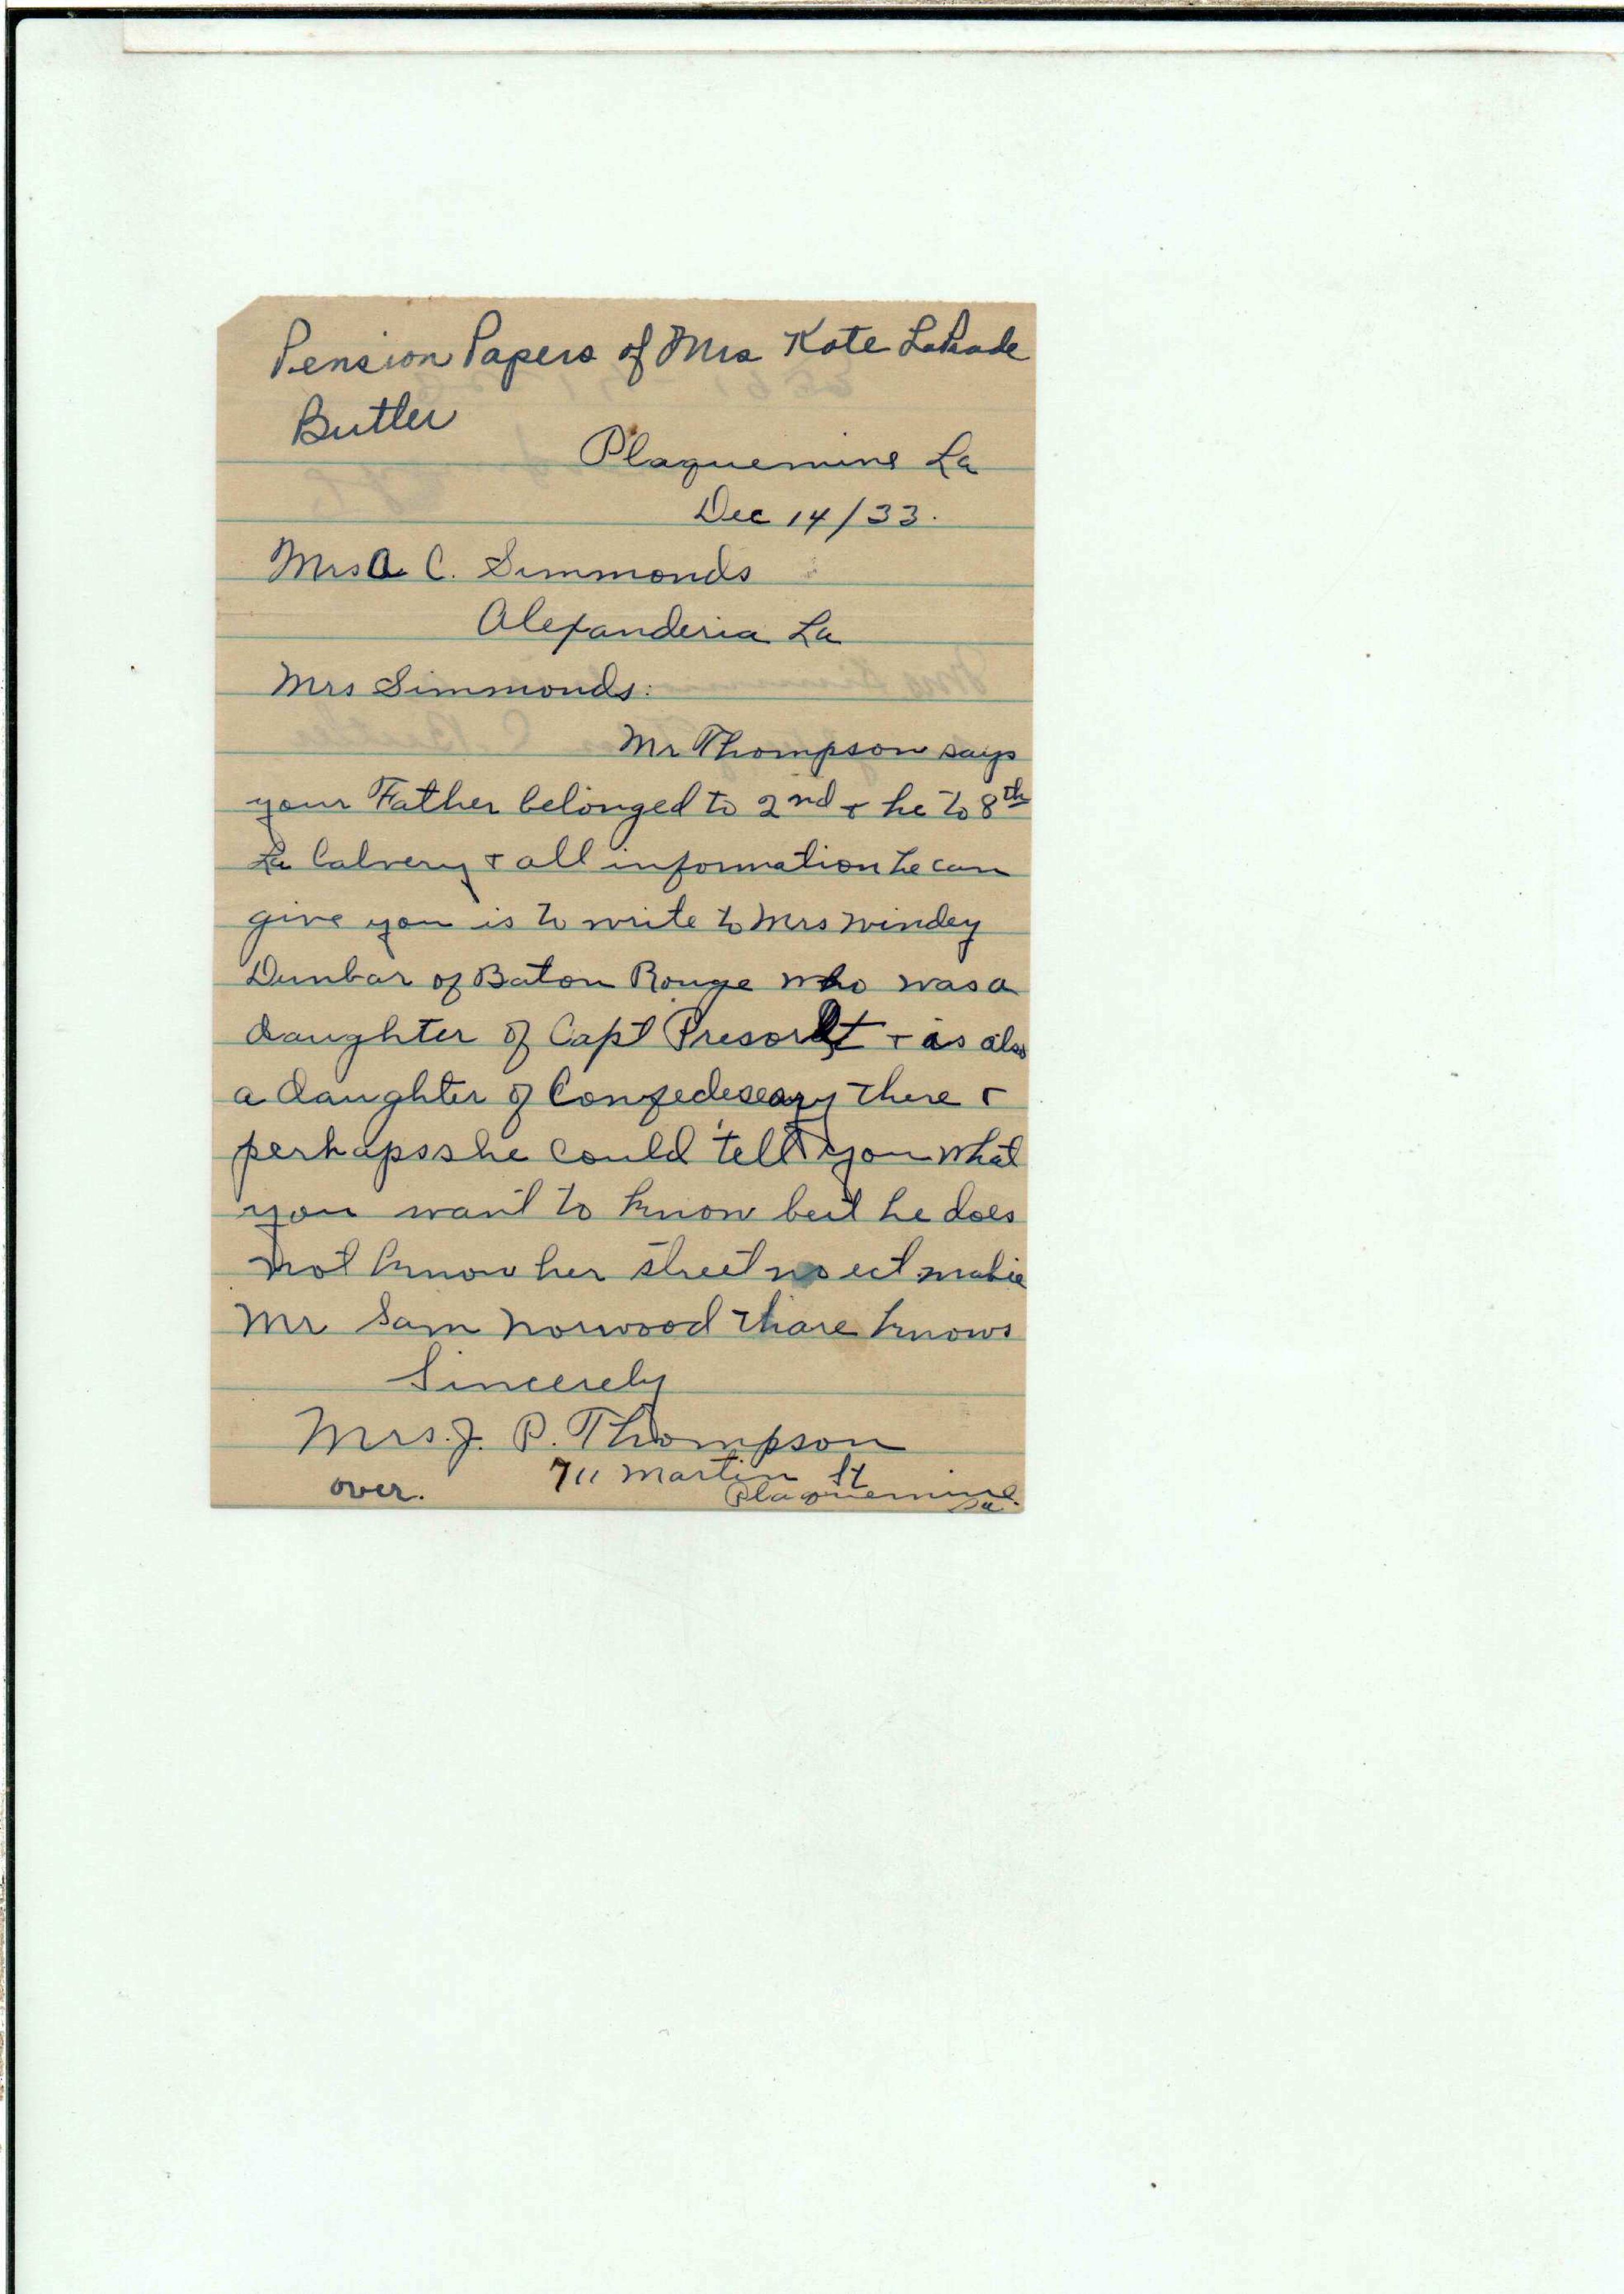 Pension Papers of Mrs Kate
Butler
Plaquemine La
Dec 14/33.
Mrs A C. Simmonds
Alexanderia La
Mrs Simmonds:
Mr Thompson says
your Father belonged to 2nd + he to 8th
La Calvery + all information he can
give you is to write to Mrs Windey
Dunbar of Baton Rouge who was a
daughter of Capt + is also
a daughter of there +
perhaps she could tell you what
you want to know but he does
not know her street no ect
Mr Sam Norwood thare knows
Sincerely
Mrs. J. P. Thompson
over. 711 Martin St
Plaquemine
La.